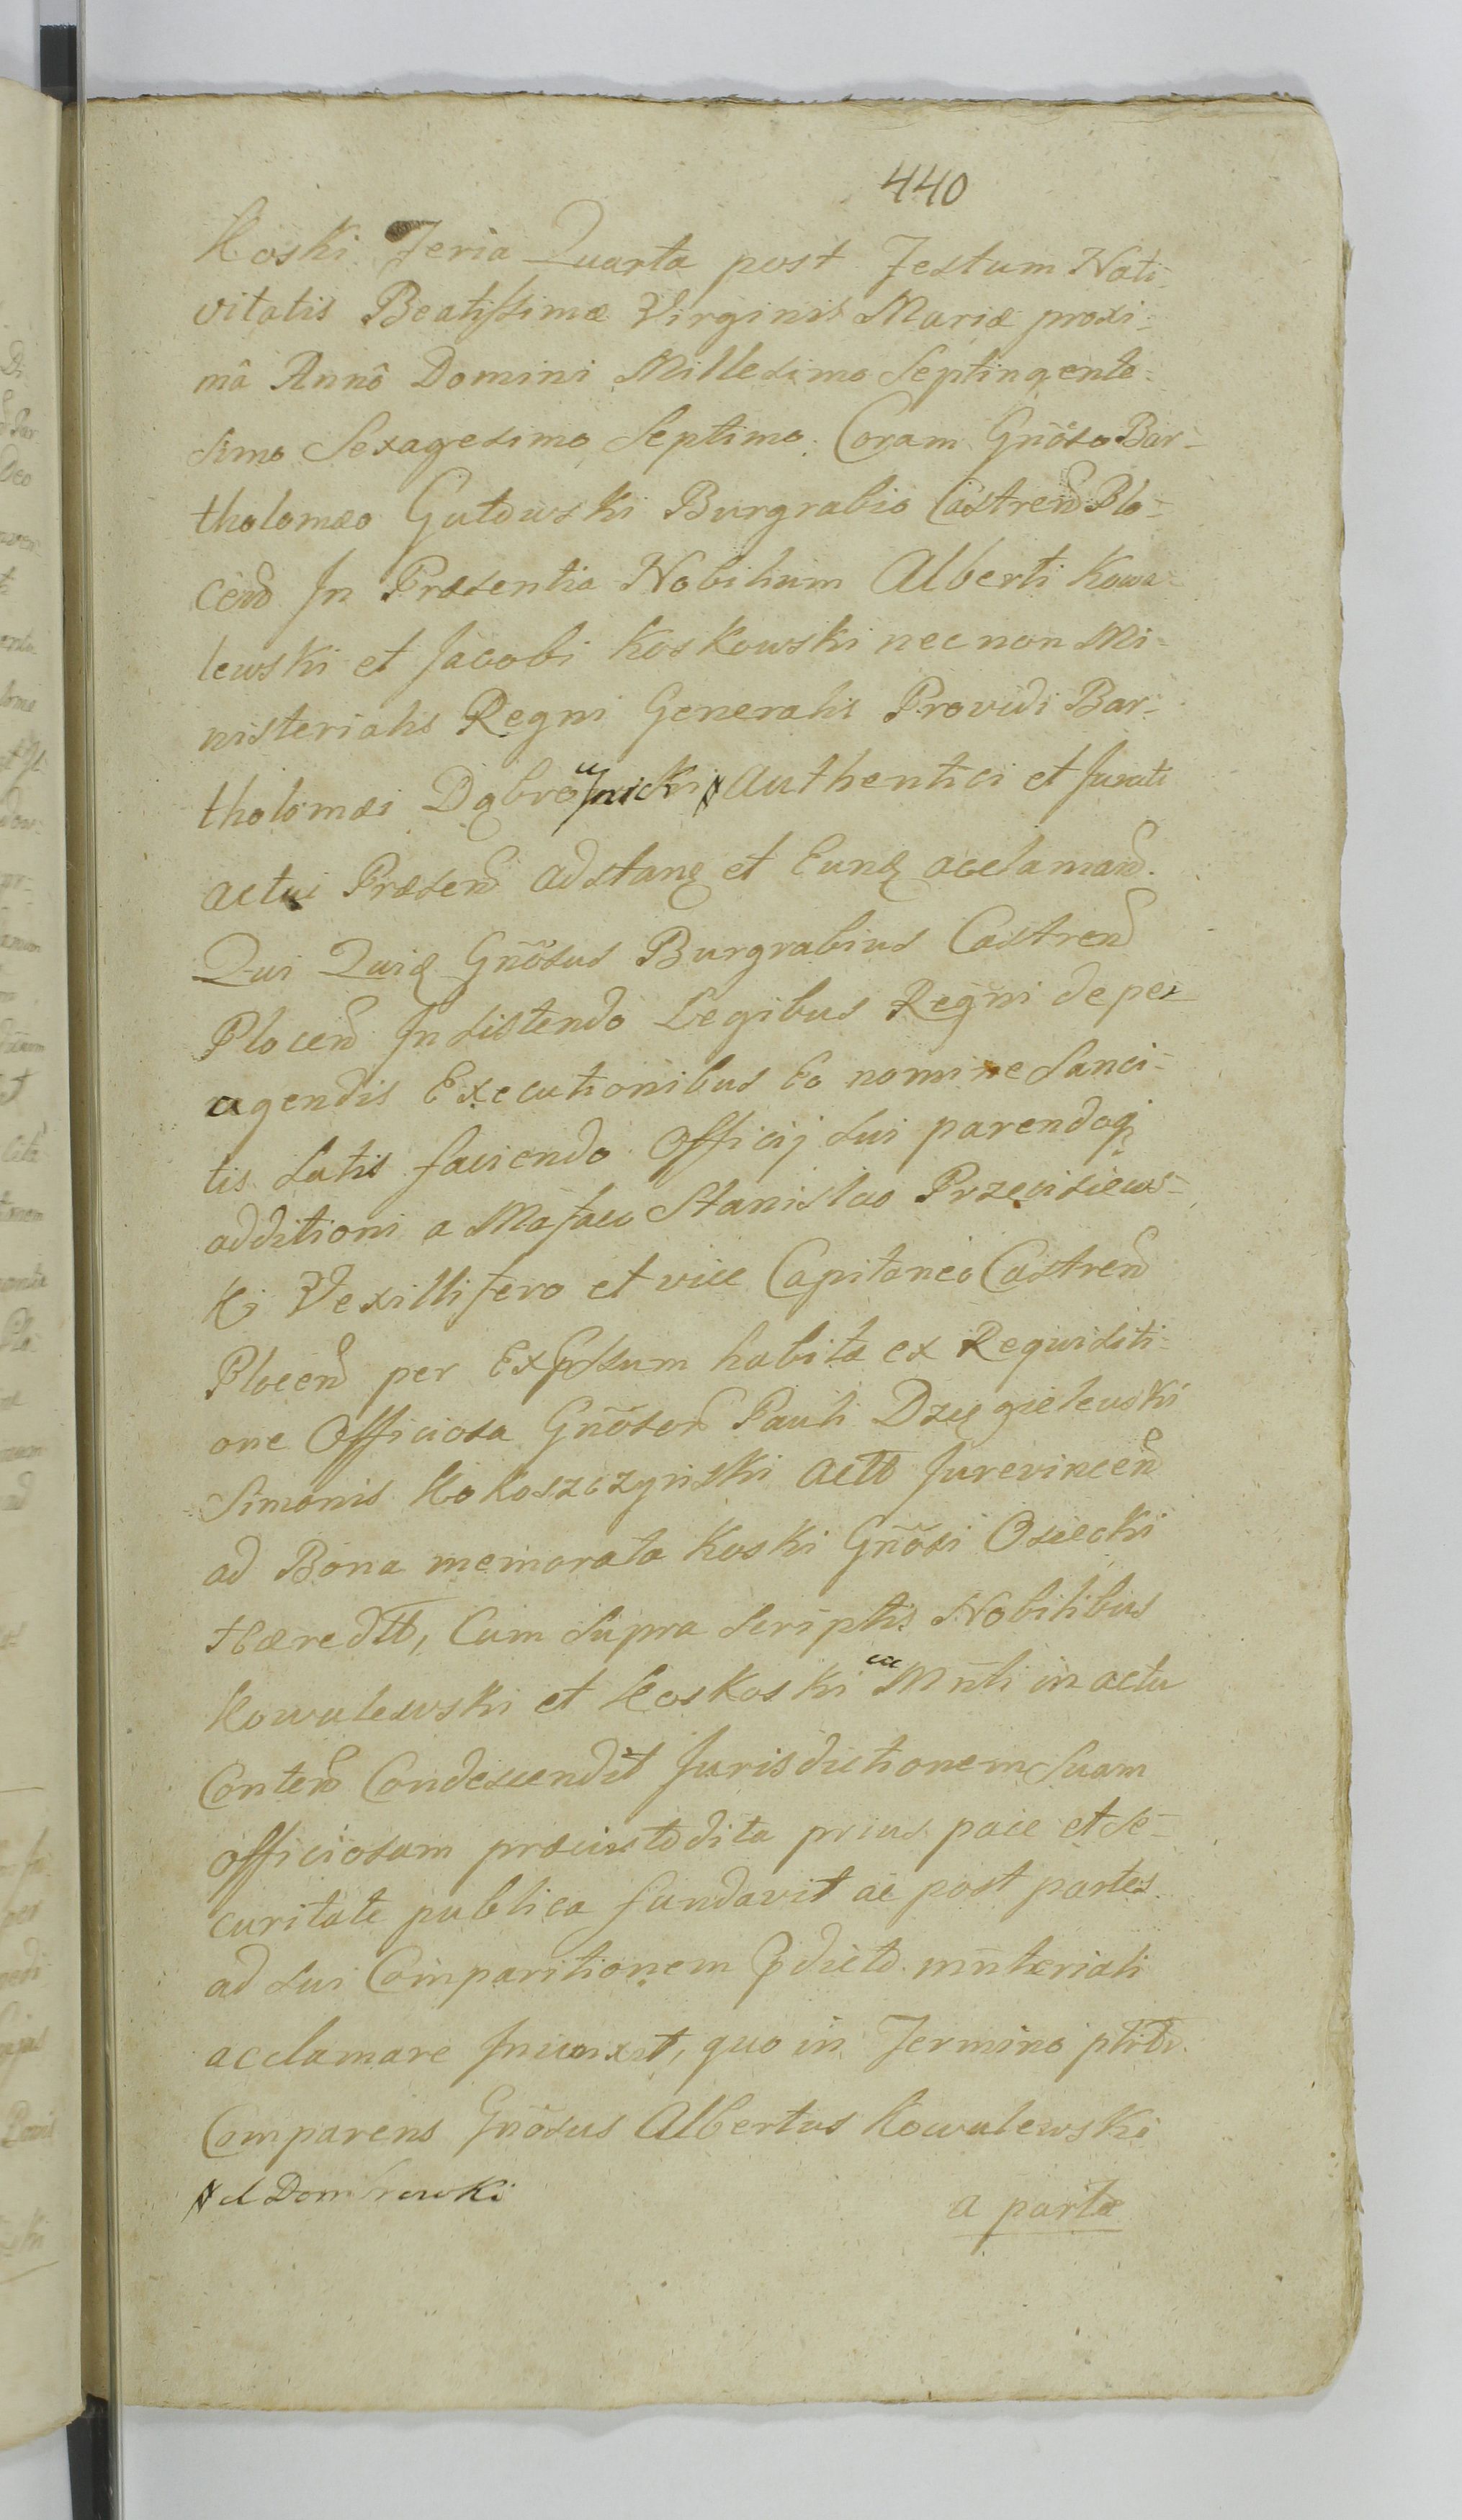 440
Koski Feria Quarta post Festum Nati-
vitatis Beatissimæ Virginis Mariæ proxi-
mâ Annô Domini Millesimo Septingente-
simo Sexagesimo Septimo. Coram Gnõso Bar-
tholomæo Gutowski Burgrabio Castren Plo-
cen In Præsentia Nobilium Alberti Kowa-
lewski et Jacobi Koskowski nec non Mi-
nisterialis Regni Generalis Providi Bar-
tholomæi Authentici et Jurati
actui Præsen adstanę et Eunđ acclaman.
Qui Quię Gnõsus Burgrabius Castren
Plocen Insistendo Legibus Regni de per-
agendis Executionibus Eo nomine Sanci-
tis Latis faciendo Officij sui parendoq
additioni a Mafaco Stanislao Przeciszews-
ki Vexillifero et vice Capitaneo Castren
Plocen per Expssum habitæ ex Requisiti-
one Officiosa Gnõsor Pauli Dzięgielewski
Simonis Kokoszczyński Actt Jurevincen
ad Bona memorata Koski Gnõsi Osiecki
Hæredtt, Cum supra scriptis Nobilibus
Kowalewski et Koskoski ac Mñli in actu
Conten Condescendit Jurisdictionem Suam
officiosam præcustodita prius pace et Se-
curitate publica fundavit ac post partes
ad sui Comparitionem pdicto mñteriali
acclamare Iniunxit, quo in Termino
Comparens Gnõsus Albertus Kowalewski
el Dombrowski
a parte